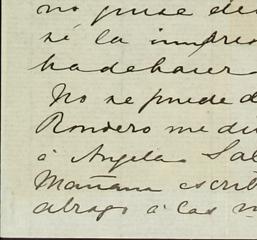 no puse de
sé la impres
ha de hacer
No se puede d
Rondero me di
á Angela Sal
Mañana escrib
abrazo á las m